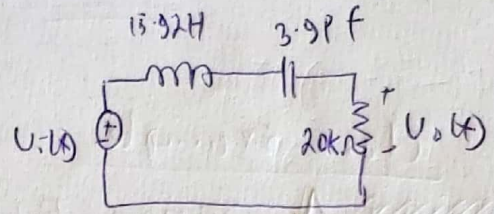 15.92H 3.9pf
+
Vi(t) + 20kΩ Vo(t)
-